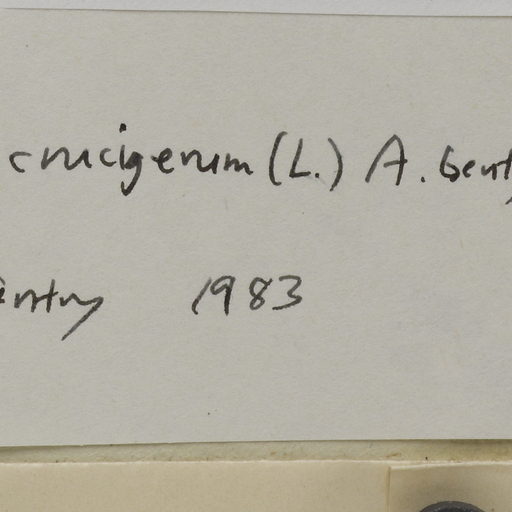 crucigerum (L.) A. Gent
entry 1983